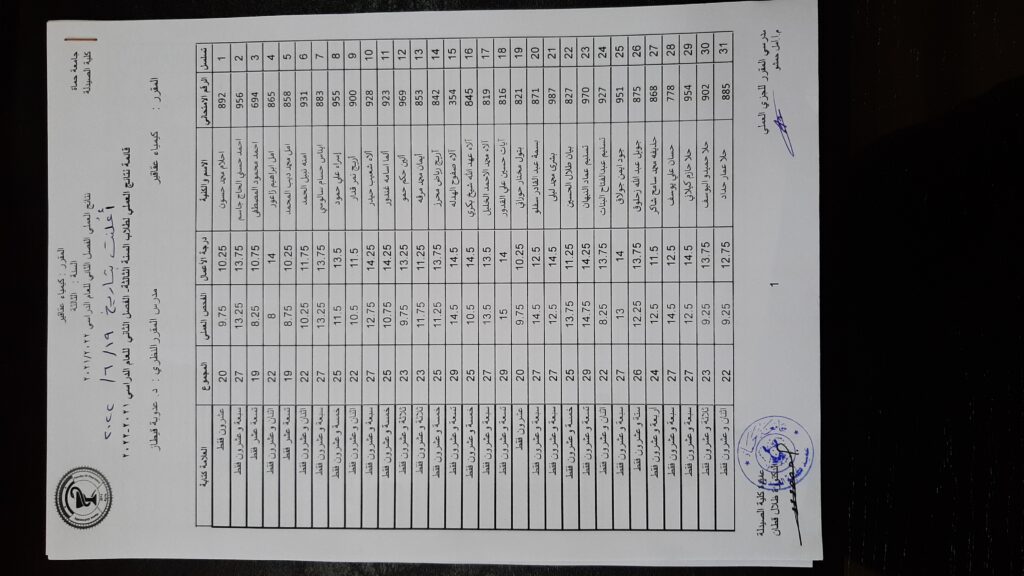 جامعة حماة
كلية الصيدلة
المقرر : كيمياء عقاقير
السنة : الثالثة
نتائج العملي الفصل الثاني للعام الدراسي ٢٠٢١/٢٠٢٢
أعلنت بتاريخ ١٩/٦/٢٠٢٢
قائمة نتائج العملي لطلاب السنة الثالثة- الفصل الثاني للعام الدراسي ٢٠٢١-٢٠٢٢
المقرر : كيمياء عقاقير مدرس المقرر النظري : د. عدوية قيطاز
تسلسل الرقم الامتحاني الاسم والكنية درجة الأعمال الفحص العملي المجموع العلامة كتابة
1 892 احلام محمد حسون 10.25 9.75 20 عشرون فقط
2 956 احمد حسني الحاج جاسم 13.75 13.25 27 سبعة و عشرون فقط
3 694 احمد محمود المصطفى 10.75 8.25 19 تسعة عشر فقط
4 865 امل ابراهيم زاعور 14 8 22 اثنان و عشرون فقط
5 858 امل محمد ديب المحمد 10.25 8.75 19 تسعة عشر فقط
6 931 امنه نبيل الحمد 11.75 10.25 22 اثنان و عشرون فقط
7 883 ايناس حسام سالوسي 13.75 13.25 27 سبعة و عشرون فقط
8 955 إسراء علي حمود 13.5 11.5 25 خمسة و عشرون فقط
9 900 أريج نمر قدار 11.5 10.5 22 اثنان و عشرون فقط
10 928 آلاء شعيب حيدر 14.25 12.75 27 سبعة و عشرون فقط
11 923 ألما اسامه غندور 14.25 10.75 25 خمسة و عشرون فقط
12 969 ألين حكم حمو 13.25 9.75 23 ثلاثة و عشرون فقط
13 853 أيمان محمد مرقه 11.25 11.75 23 ثلاثة و عشرون فقط
14 842 أريج رياض محرز 13.75 11.25 25 خمسة و عشرون فقط
15 354 آلاء صفوح الهداله 14.5 14.5 29 تسعة و عشرون فقط
16 845 آلاء عهد الله شيخ بكري 14.5 10.5 25 خمسة و عشرون فقط
17 819 آلاء محمد الاحمد الخليل 13.5 13.5 27 سبعة و عشرون فقط
18 816 آيات حسين علي القدور 14 15 29 تسعة و عشرون فقط
19 821 بتول مختار حوراني 10.25 9.75 20 عشرون فقط
20 871 بسمة عبد القادر سفلو 12.5 14.5 27 سبعة و عشرون فقط
21 987 بشرى محمد ليلى 14.5 12.5 27 سبعة و عشرون فقط
22 827 بيان طلال الحسين 11.25 13.75 25 خمسة و عشرون فقط
23 970 تسنيم عماد النبهان 14.25 14.75 29 تسعة و عشرون فقط
24 927 تسنيم عبدالفتاح البنات 13.75 8.25 22 اثنان و عشرون فقط
25 951 جود ايمن جولاق 14 13 27 سبعة و عشرون فقط
26 875 جويل عبد الله زحلوق 13.75 12.25 26 ستة و عشرون فقط
27 868 حذيفه محمد سامح شاكر 11.5 12.5 24 أربعة و عشرون فقط
28 778 حسان علي يوسف 12.5 14.5 27 سبعة و عشرون فقط
29 954 حلا حازم كيلاني 14.5 12.5 27 سبعة و عشرون فقط
30 902 حلا حميدو اليوسف 13.75 9.25 23 ثلاثة و عشرون فقط
31 885 حلا عمار حداد 12.75 9.25 22 اثنان و عشرون فقط
مدرسي المقرر للجزء العملي
م.أ.أمل حشمو
1
عميد كلية الصيدلة
طلال قطان